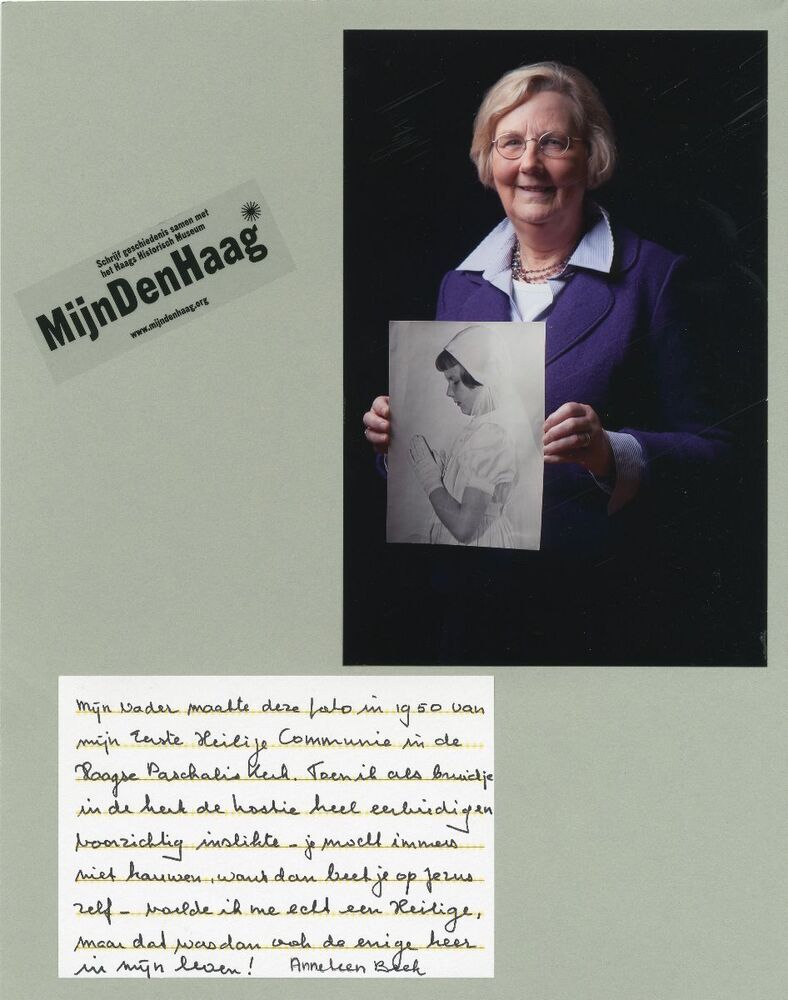 Schrijf geschiedenis samen met
het Haags Historisch Museum
MijnDenHaag
www.mijndenhaag.org
Mijn vader maakte deze foto in 1950 van
mijn Eerste Heilige Communie in de
Haagse Paschalis Kerk. Toen ik als bruidje
in de kerk de hostie heel eerbiedig en
voorzichtig inslikte - je mocht immers
niet kauwen, want dan beet je op Jezus
zelf - voelde ik me echt een Heilige,
maar dat was dan ook de enige keer
in mijn leven! Anneleen Beek